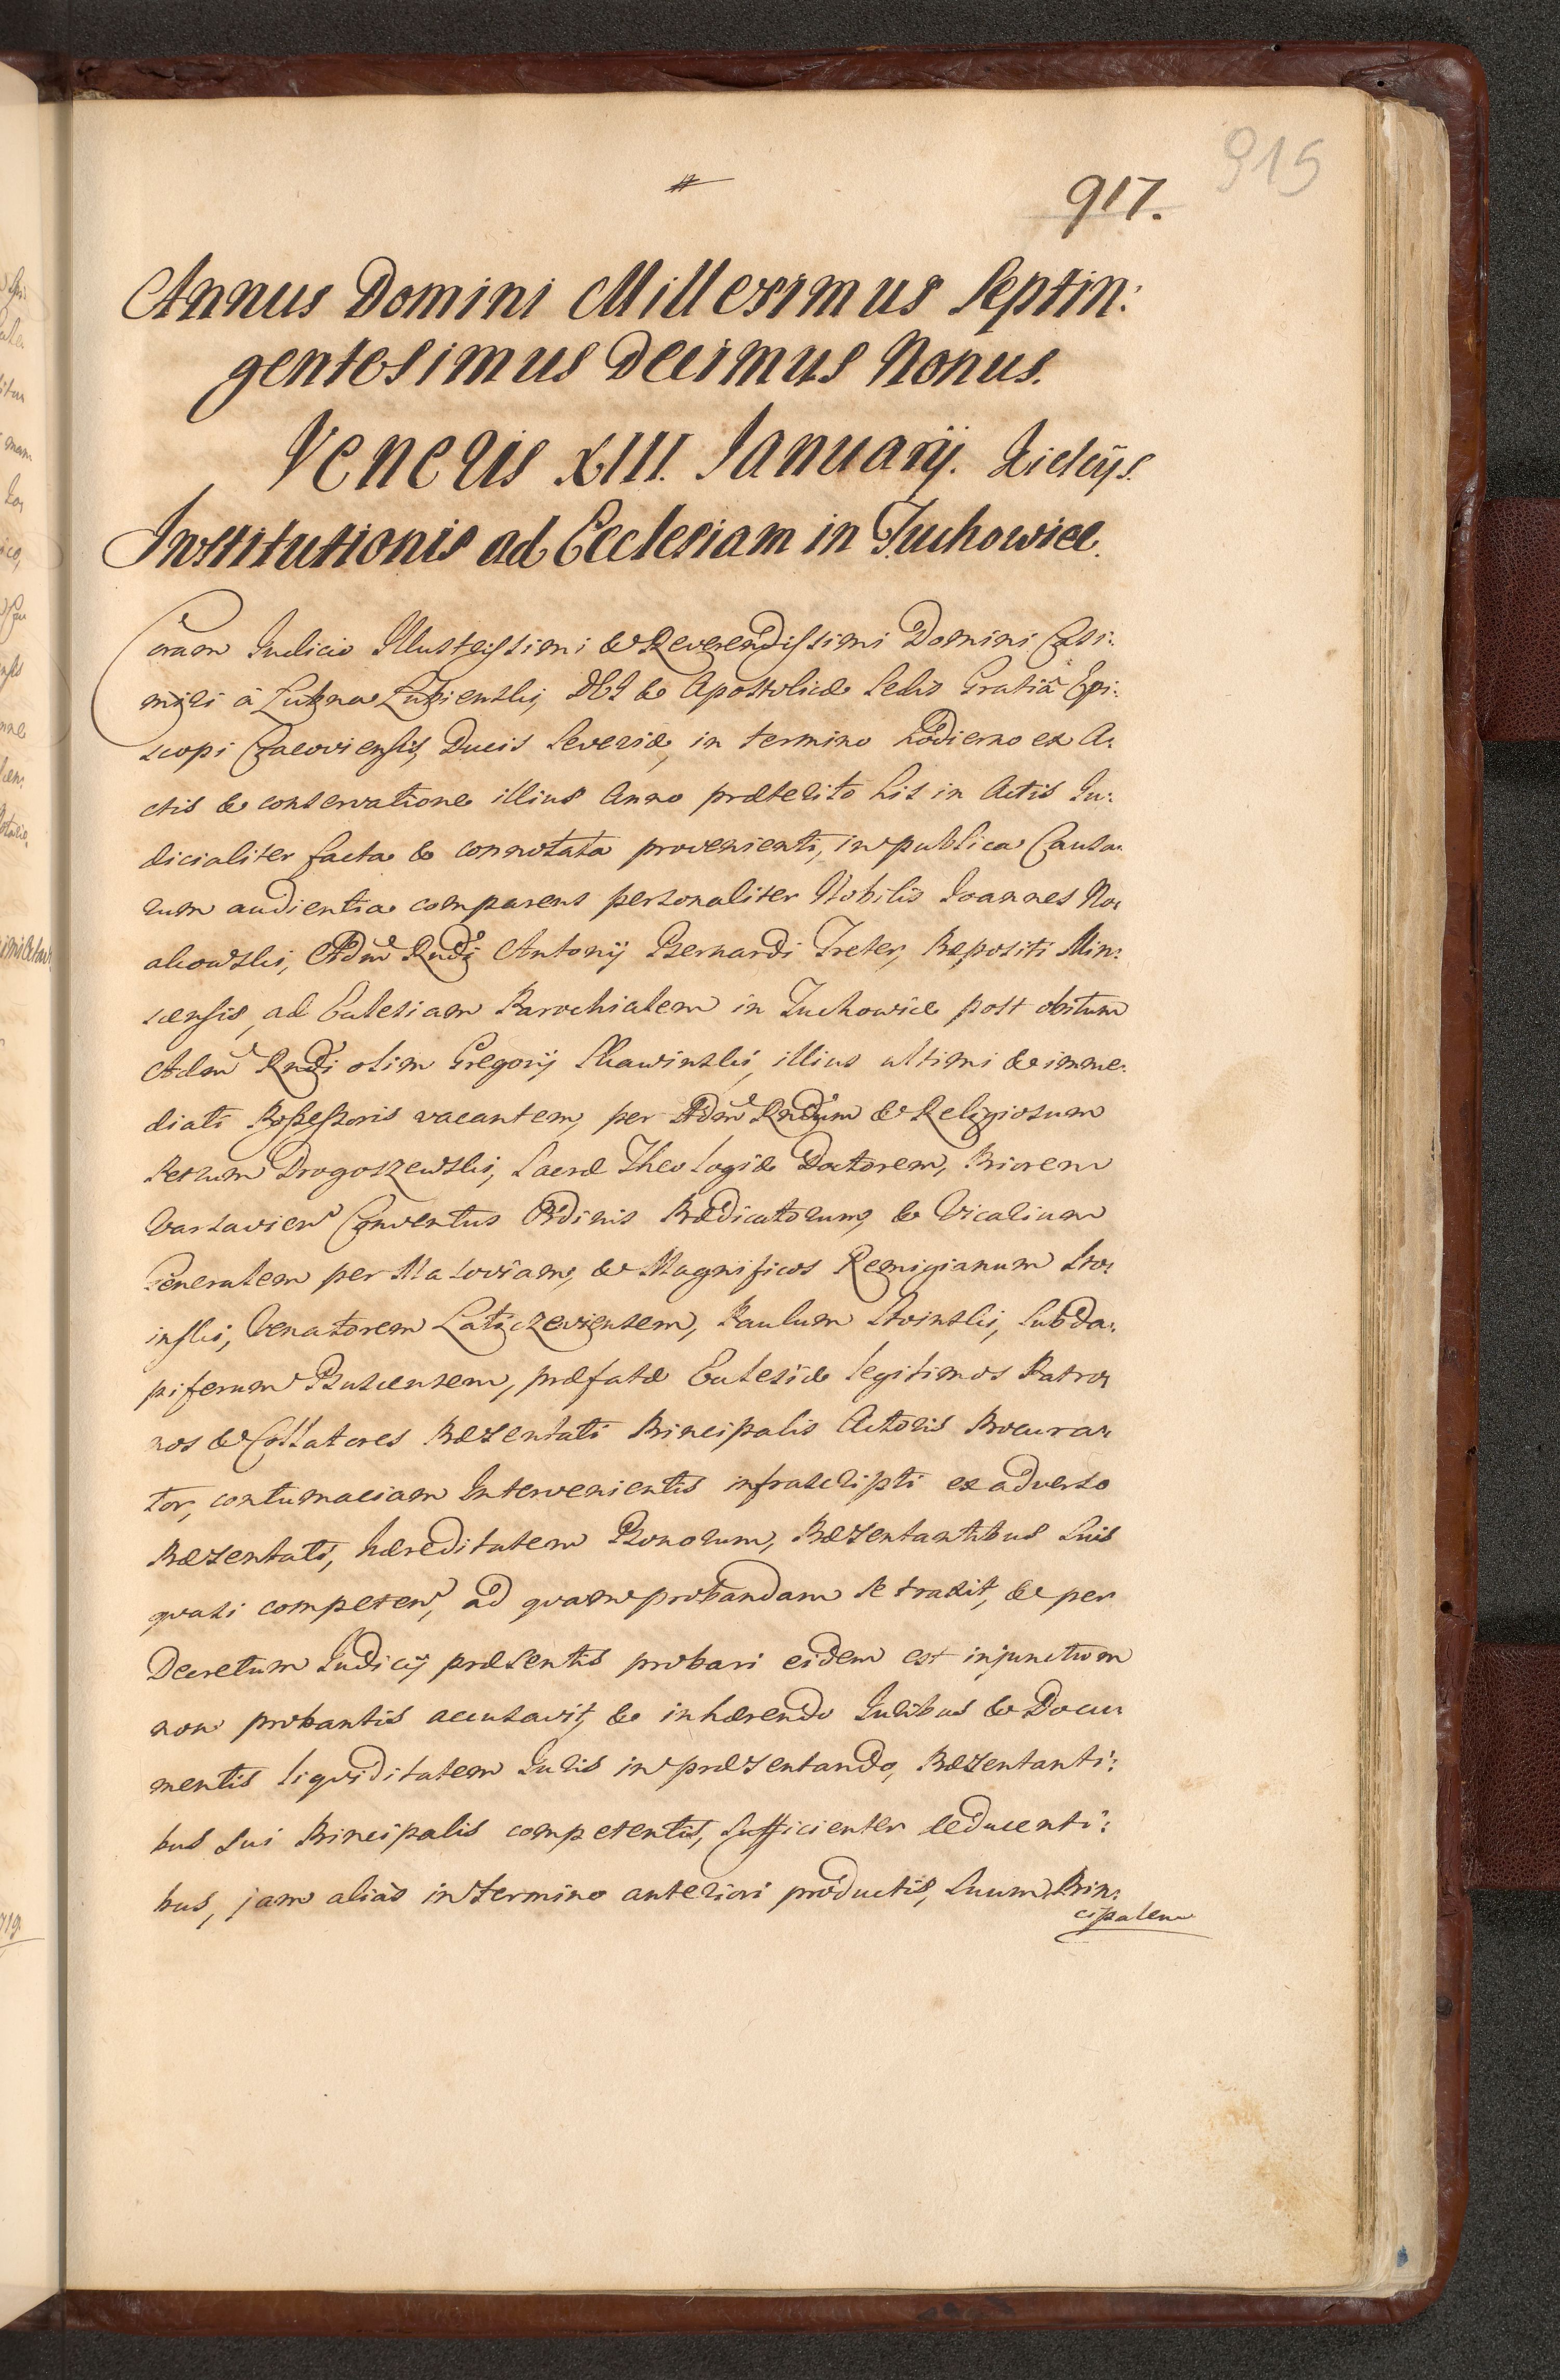 915
917.
Annus Domini Millesimus Septin:
gentesimus Decimus Nonus.
Veneris XIII. Januarij. Kielcijs.
Institutionis ad Ecclesiam in Tuchowice.
Coram Judicio Illustrissimi & Reverendissimi Domini Casi:
miri à Łubna Łubienski, DEI & Apostolicæ Sedis Gratiâ Epi:
scopi Cracoviensis, Ducis Severiæ, in termino hodierno ex A:
ctis & conservatione illius Anno præterito his in Actis Ju:
dicialiter facta & connotata provenienti, in publica Causa:
rum audientia comparens personaliter Nobilis Joannes No:
akowski, Admd Rndi Antonij Bernardi Treter, Præpositi Min:
scensis, ad Ecclesiam Parochialem in Tuchowice post obitum
Admd Rndi olim Gregorij Skawinski, illius ultimi & imme:
diati Possessoris vacantem, per Admd Rndum & Religiosum
Petrum Drogoszewski, Sacræ Theologiæ Doctorem, Priorem
Varsavien Conventus Ordinis Prædicatorum, & Vicarium
Generalem per Masoviam, & Magnificos Remigianum Sto:
inski, Venatorem Laticzeviensem, Paulum Stoinski, Subda:
piferum Buscensem, præfatæ Ecclesiæ legitimos Patro:
nos & Collatores Præsentati Principalis Actoris Procura:
tor, contumaciam Intervenientis infrascripti ex adverso
Præsentati, hæreditatem Bonorum, Præsentantibus Suis
quasi competen, ad quam probandam se traxit, & per
Decretum Judicij præsentis probari eidem est injunctum
non probantis accusavit, & inhærendo Juribus & Docu:
mentis liquiditatem Juris in præsentando, Præsentanti:
bus Sui Principalis competentis, sufficienter educenti:
bus, jam alias in termino anteriori productis, Suum Prin:
cipalem